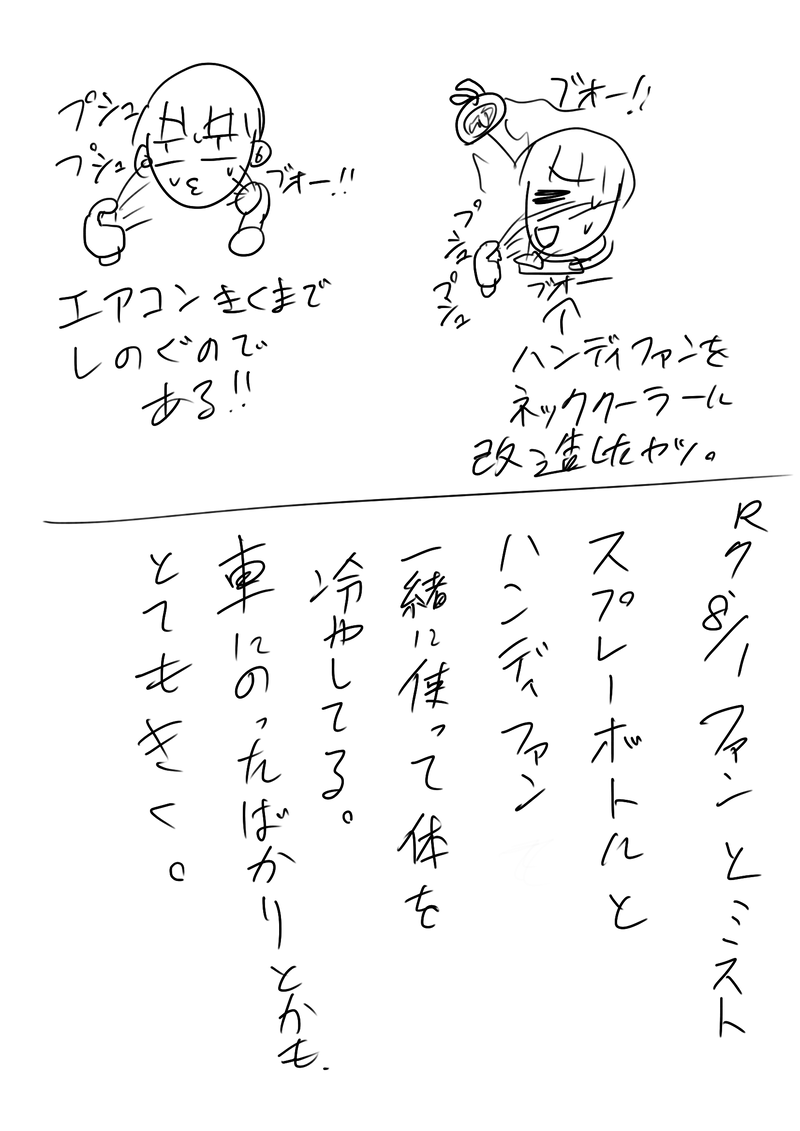 ブオー!!
プシュ
プシュ
ブオー
ハンディファンを
ネッククーラーに
改造したヤツ。
プシュ
プシュ
ブオー!!
エアコンきくまで
しのぐので
ある!!
R7 8/1 ファンとミスト
スプレーボトルと
ハンディファン
一緒に使って体を
冷やしてる。
車にのったばかりとかも.
とてもきく。